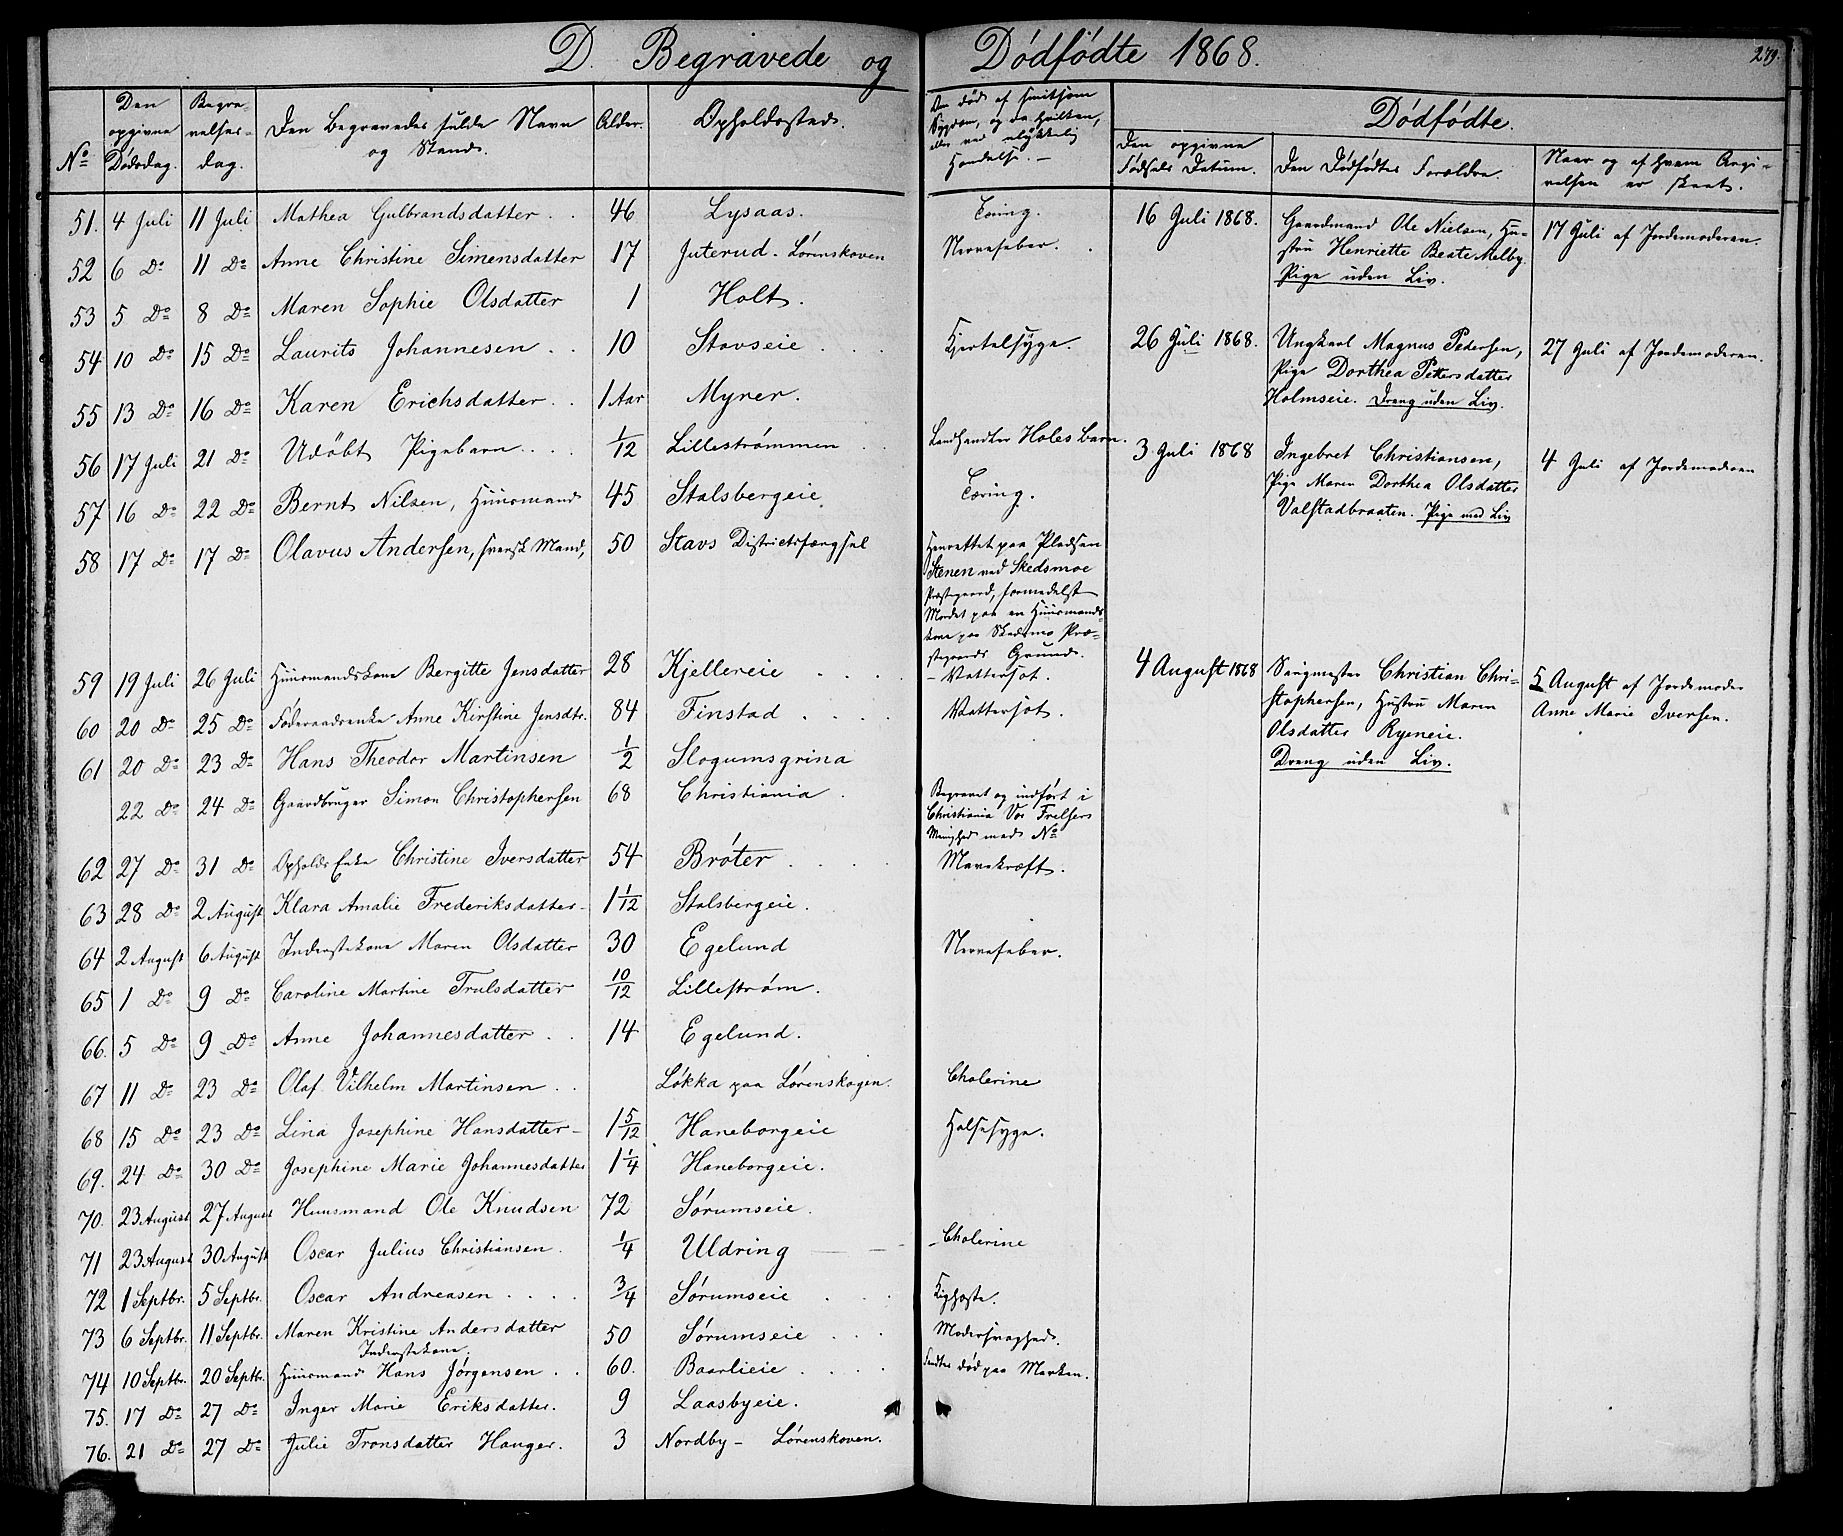 D. Begravede og Dødfødte 1868.
279.
No
Den opgivne Dødsdag.
Begravelses-dag.
Den Begravedes fulde Navn og Stand.
Alder.
Opholdssted.
Om død af smitsom
Sygdom, og da hvilken,
eller ved ulykkelig
Hændelse. –
Dødfødte.
Den opgivne Fødsels Datum.
Den Dødfødtes Forældre.
Naar og af hvem Angivelsen er skeet.
51. 4 Juli 11 Juli Mathea Gulbrandsdatter . . 46 Lysaas. Tæring.
52 6 Do 11 Do Anne Christine Simensdatter 17 Juterud. Lørenskoven Nervefeber.
53 5 Do 8 Do Maren Sophie Olsdatter 1 Holt.
54 10 Do 15 Do Laurits Johannesen . . 10 Stavseie . . Kjertelsyge.
55 13 Do 16 Do Karen Erichsdatter . . 1 Aar Myrer.
56 17 Juli 21 Do Udøbt Pigebarn . . . 1/12 Lillestrømmen . Landhandler Holes Barn.
57 16 Do 22 Do Bernt Nilsen, Huusmand 45 Stalsbergeie Tæring.
58 17 Do 17 Do Olavus Andersen, svensk Mand, 50 Stavs Districtsfængsel
Henrettet paa Pladsen
Stenen ved Skedsmoe
Præstegaard, formedelst
Mordet paa en Huusmands-
kone paa Skedsmo Præ-
stegaards Grund.
59 19 Juli 26 Juli Huusmandskone Bergitte Jensdatter 28 Kjellereie . . . . – Vattersot.
60 20 Do 25 Do Føderaadsenke Anne Kirstine Jensdtr. 84 Finstad . . . . Vattersot.
61 20 Do 23 Do Hans Theodor Martinsen 1/2 Slogumsgrina
22 Do 24 Do Gaardbruger Simon Christophersen 68 Christiania .
Begravet og indført i
Christiania Vor Frelsers
Menighed med No
62 27 Do 31 Do Opholds Enke Christine Iversdatter 54 Brøter . . . . Mavekræft.
63 28 Do 2 August Klara Amalie Frederiksdatter – 1 1/12 Stalsbergeie.
64 2 August 6 August Inderstekone Maren Olsdatter 30 Egelund Nervefeber.
65 1 Do 9 Do Caroline Martine Trulsdatter 10/12 Lillestrøm.
66. 5 Do 9 Do Anne Johannesdatter . . 14 Egelund.
67 11 Do 23 Do Olaf Vilhelm Martinsen . . Løkka paa Lørenskogen. Cholerine
68 15 Do 23 Do Lina Josephine Hansdatter – 1 5/12 Haneborgeie Halssyge.
69. 24 Do 30 Do Josephine Marie Johannesdatter 1 1/4 Haneborgeie.
70. 23 August 27 August Huusmand Ole Knudsen 72 Sørumseie.
71 23 August 30 August Oscar Julius Christiansen . 1/4 Uldring – Cholerine
72 1 Septbr. 5 Septbr. Oscar Andreasen . . . . 3/4 Sørumseie . . . Kighoste.
73 6 Septbr. 11 Septbr. Maren Kristine Andersdatter
Inderstekone. 50 Sørumseie . . . Modersvaghed.
74 10 Septbr. 20 Septbr. Huusmand Hans Jørgensen . . 60. Baarlieie . . . . Fandtes død paa Marken.
75. 17 Do 27 Do Inger Marie Eriksdatter. 9 Laasbyeie.
76. 21 Do 27 Do Julie Tronsdatter Hauger. 3 Nordby – Lørenskoven.
16 Juli 1868.
Gaardmand Ole Nielsen, Hu-
stru Henriette Beate Melby.
Pige uden Liv.
17 Juli af Jordemoderen.
26 Juli 1868.
Ungkarl Magnus Pedersen,
Pige Dorthea Petersdatter
Holmseie. Dreng uden Liv.
27 Juli af Jordemoderen.
3 Juli 1868
Ingebret Christiansen,
Pige Maren Dorthea Olsdatter
Valstadbraaten. Pige med Liv
4 Juli af Jordemoderen
4 August 1868
Christian Chri-
stophersen, Hustru Maren
Olsdatter Ryeneie.
Dreng uden Liv.
5 August af Jordemoder
Anne Marie Iversen.